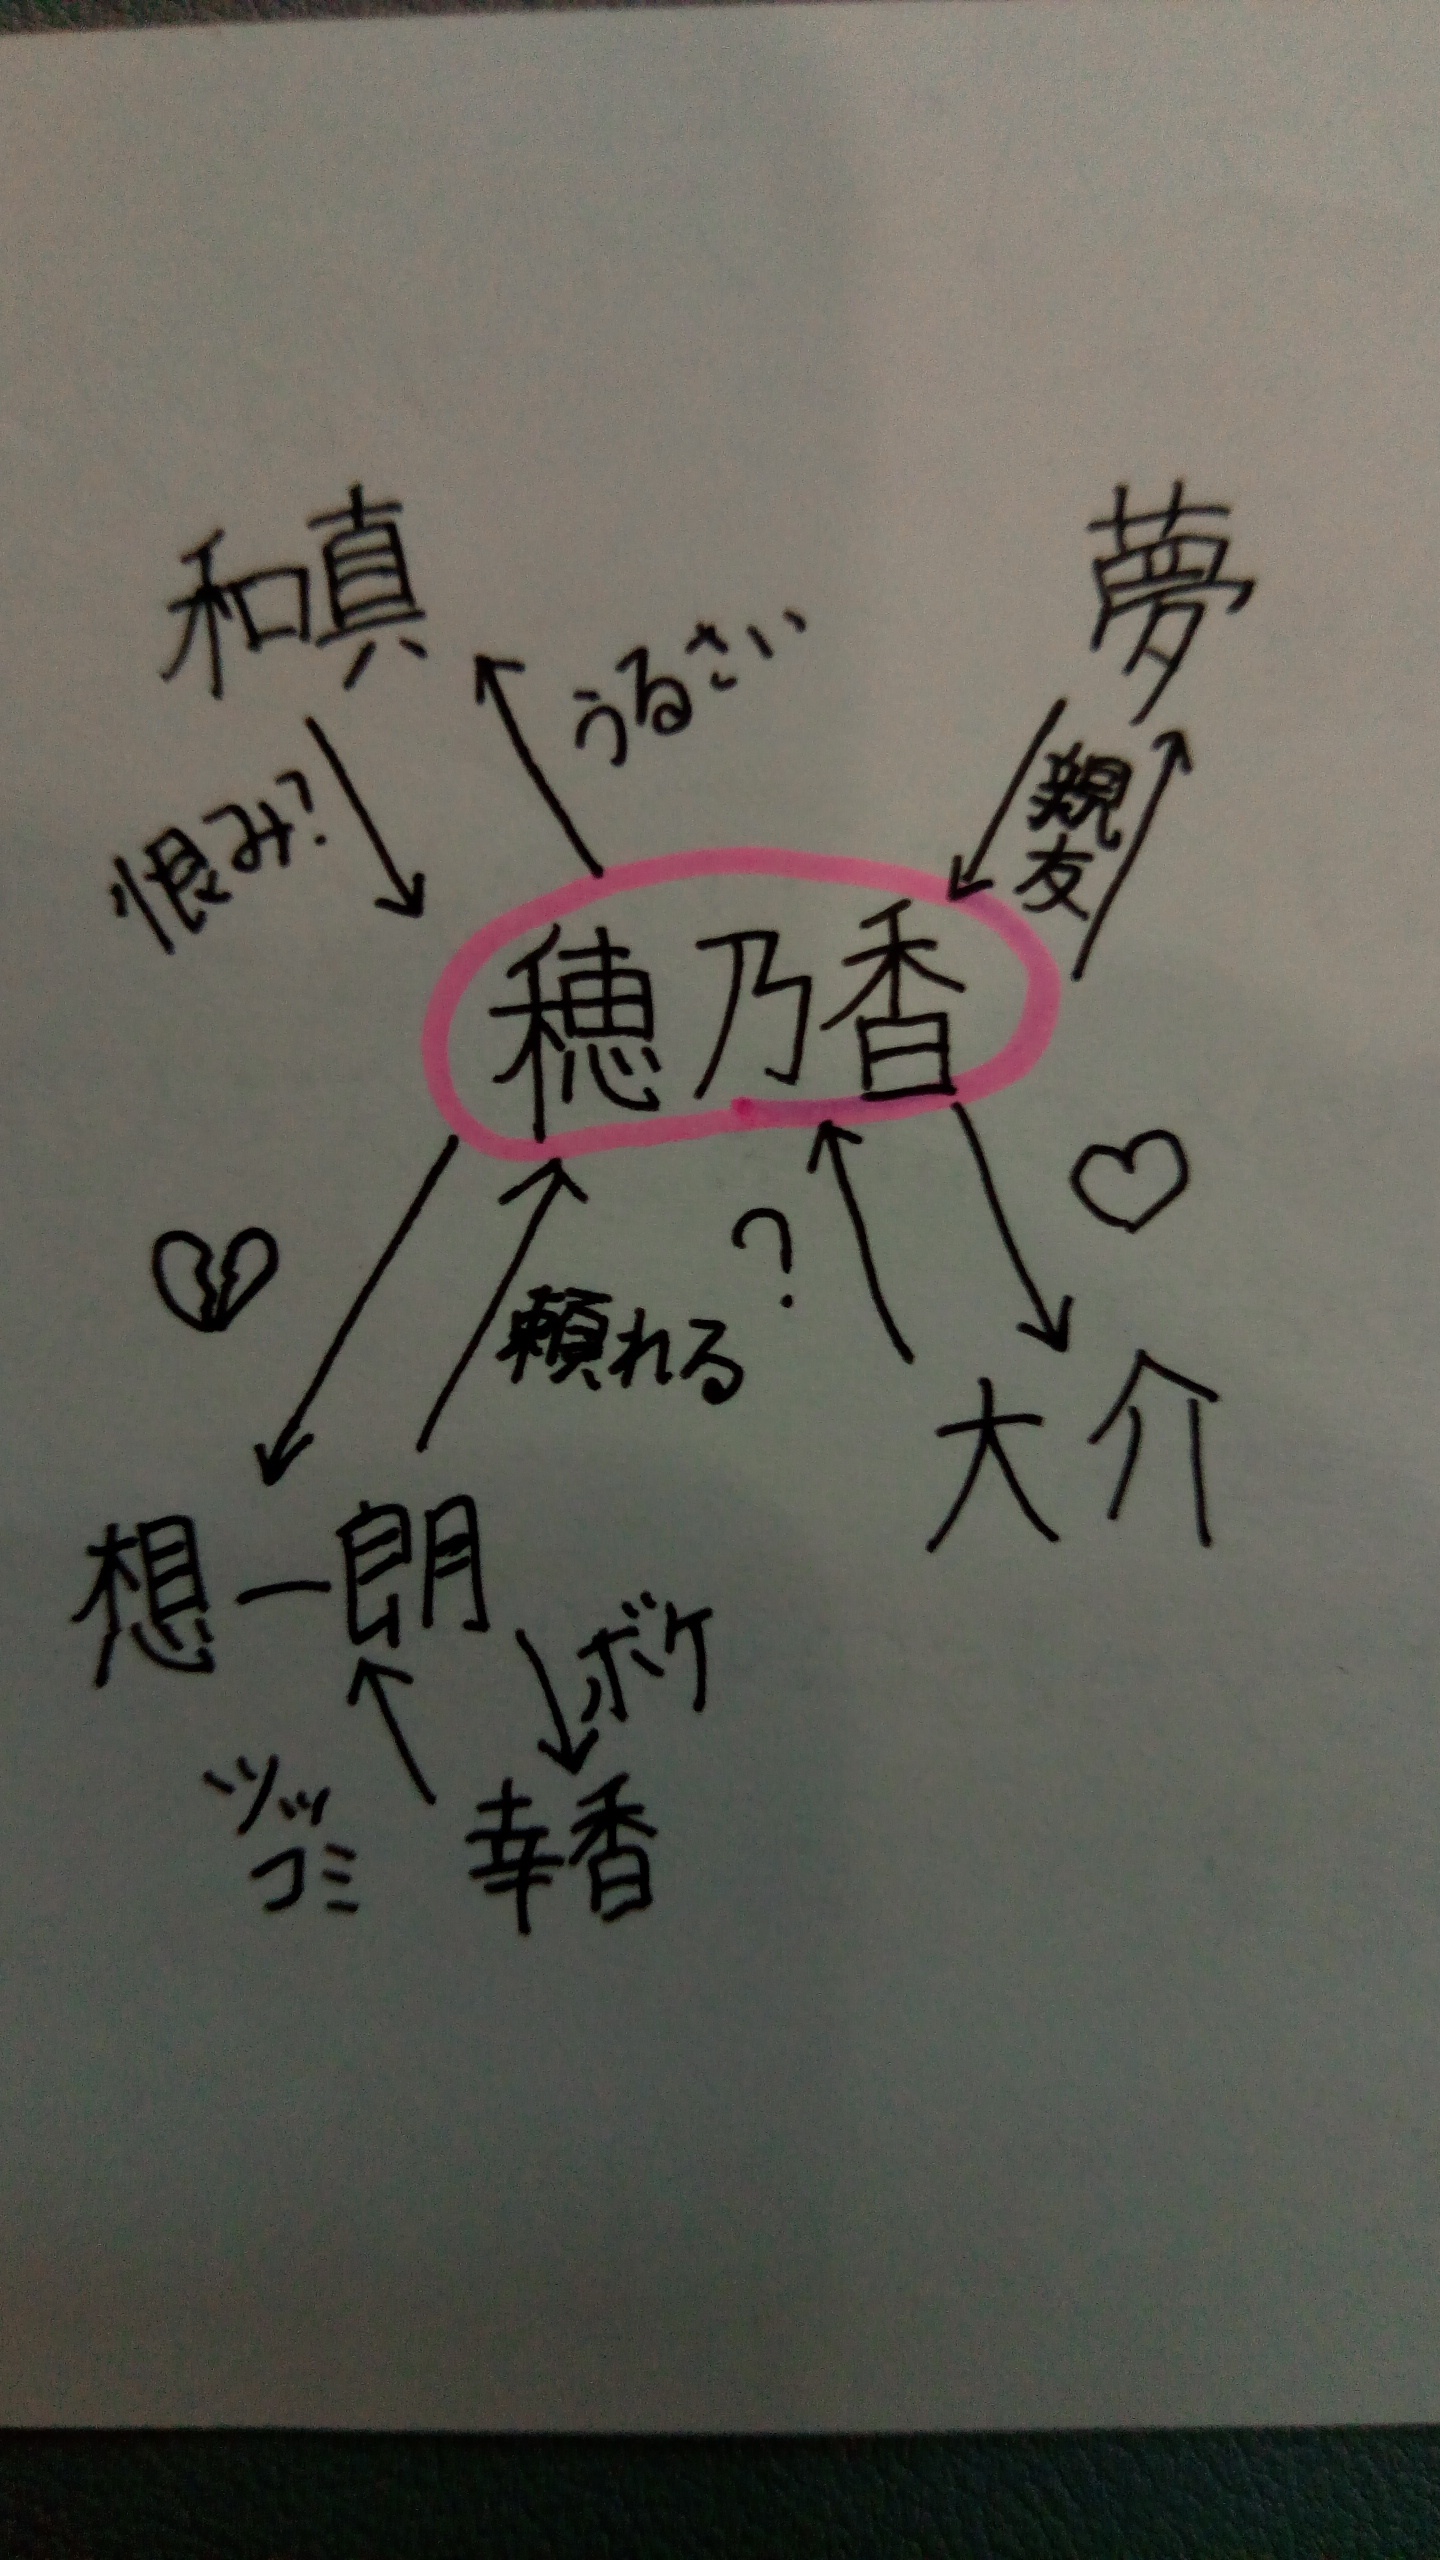 和真
夢
うるさい
恨み?
親友
穂乃香
?
頼れる
大介
想一朗
ボケ
ツッ
コミ
幸香